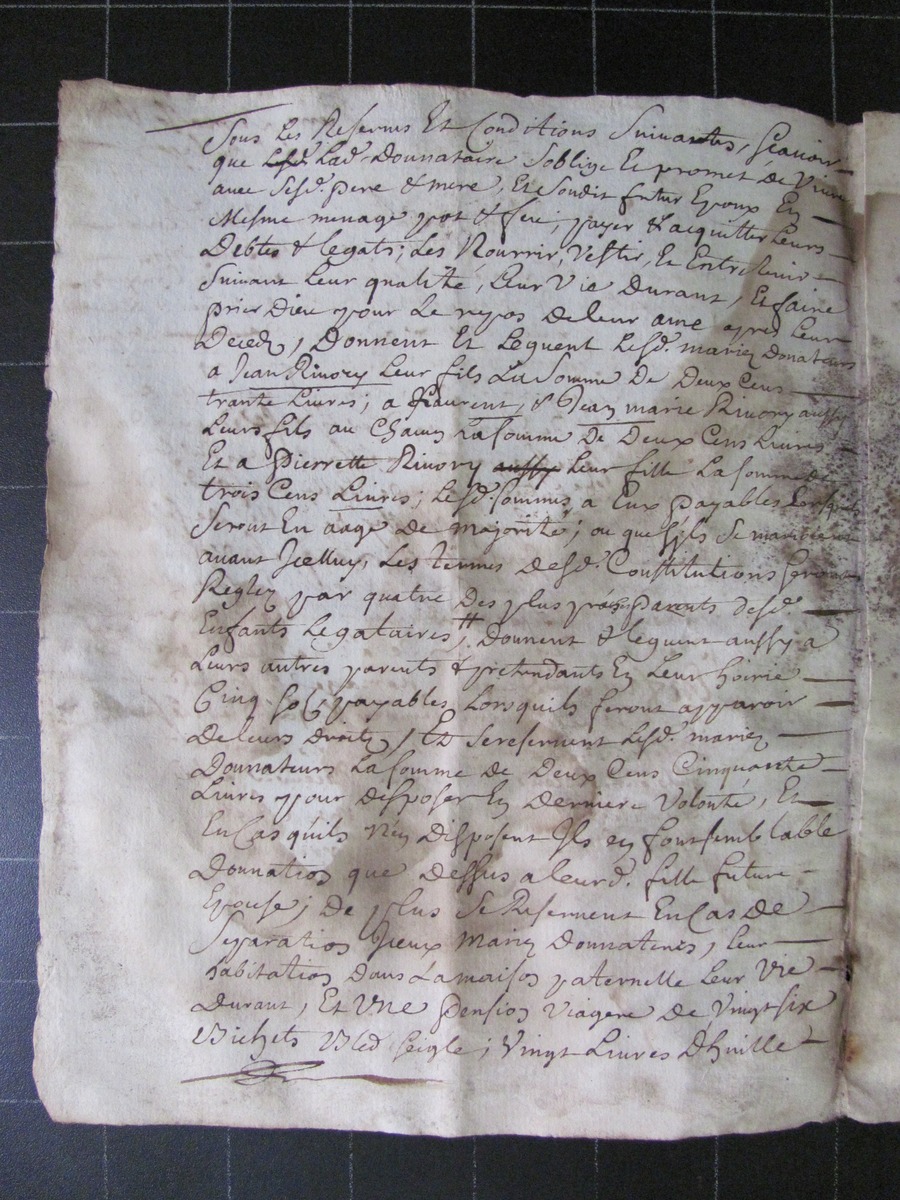 Sous Les Reserves Et Conditions Suivantes, Scavoir
que Lad. Donnataire Soblige Et promet de Vivre
avec Sesd. pere & mere, Et Sondit futur Epoux En
Mesme menage pot & feu; payer & acquitter Leurs
Debtes & legats; Les Nourrir, Vestir, Et Entretenir
Suivant Leur qualité, Leur Vie Durant, Et faire
prier Dieu pour Le repos de leur ame apres Leur
Deced, Donnent Et Leguent Lesd. mariez Donateurs
a Jean Rivory Leur fils La Somme De Deux Cens
trante Livres; a Laurent, & Jean marie Rivory aussy
Leurs fils au Chacun La somme De Deux Cens Livres
Et a Pierrette Rivory aussy Leur fille La somme de
trois Cens Livres; Lesd. sommes a Eux payables Lorsquils
Seront En aage de majorité; ou que sils Se marioient
avant Jcelluy, Les termes desd. Constitutions seront
Reglez par quatre Des plus proches parents desd.
Enfants Legataires # Donnent & leguent aussy a
Leurs autres parents & pretendants En Leur hoirie
Cinq sols payables Lorsquils feront apparoir
De leurs Droits, Et Se reservent Lesd. mariez
Donnateurs La somme de Deux Cens Cinquante
Livres pour desposer En Derniere Volonté, Et
En Cas quils Nen Disposent Jls en font semblable
Donnation que dessus a leurd. fille future
Epouse; De plus Se Reservent En Cas De
Separation Jceux Mariez Donnateurs, Leur
habitation Dans La maison paternelle Leur Vie
Durant, Et Vne Pension Viagere De Vingt six
Bichets Bled seigle; Vingt Livres Dhuille